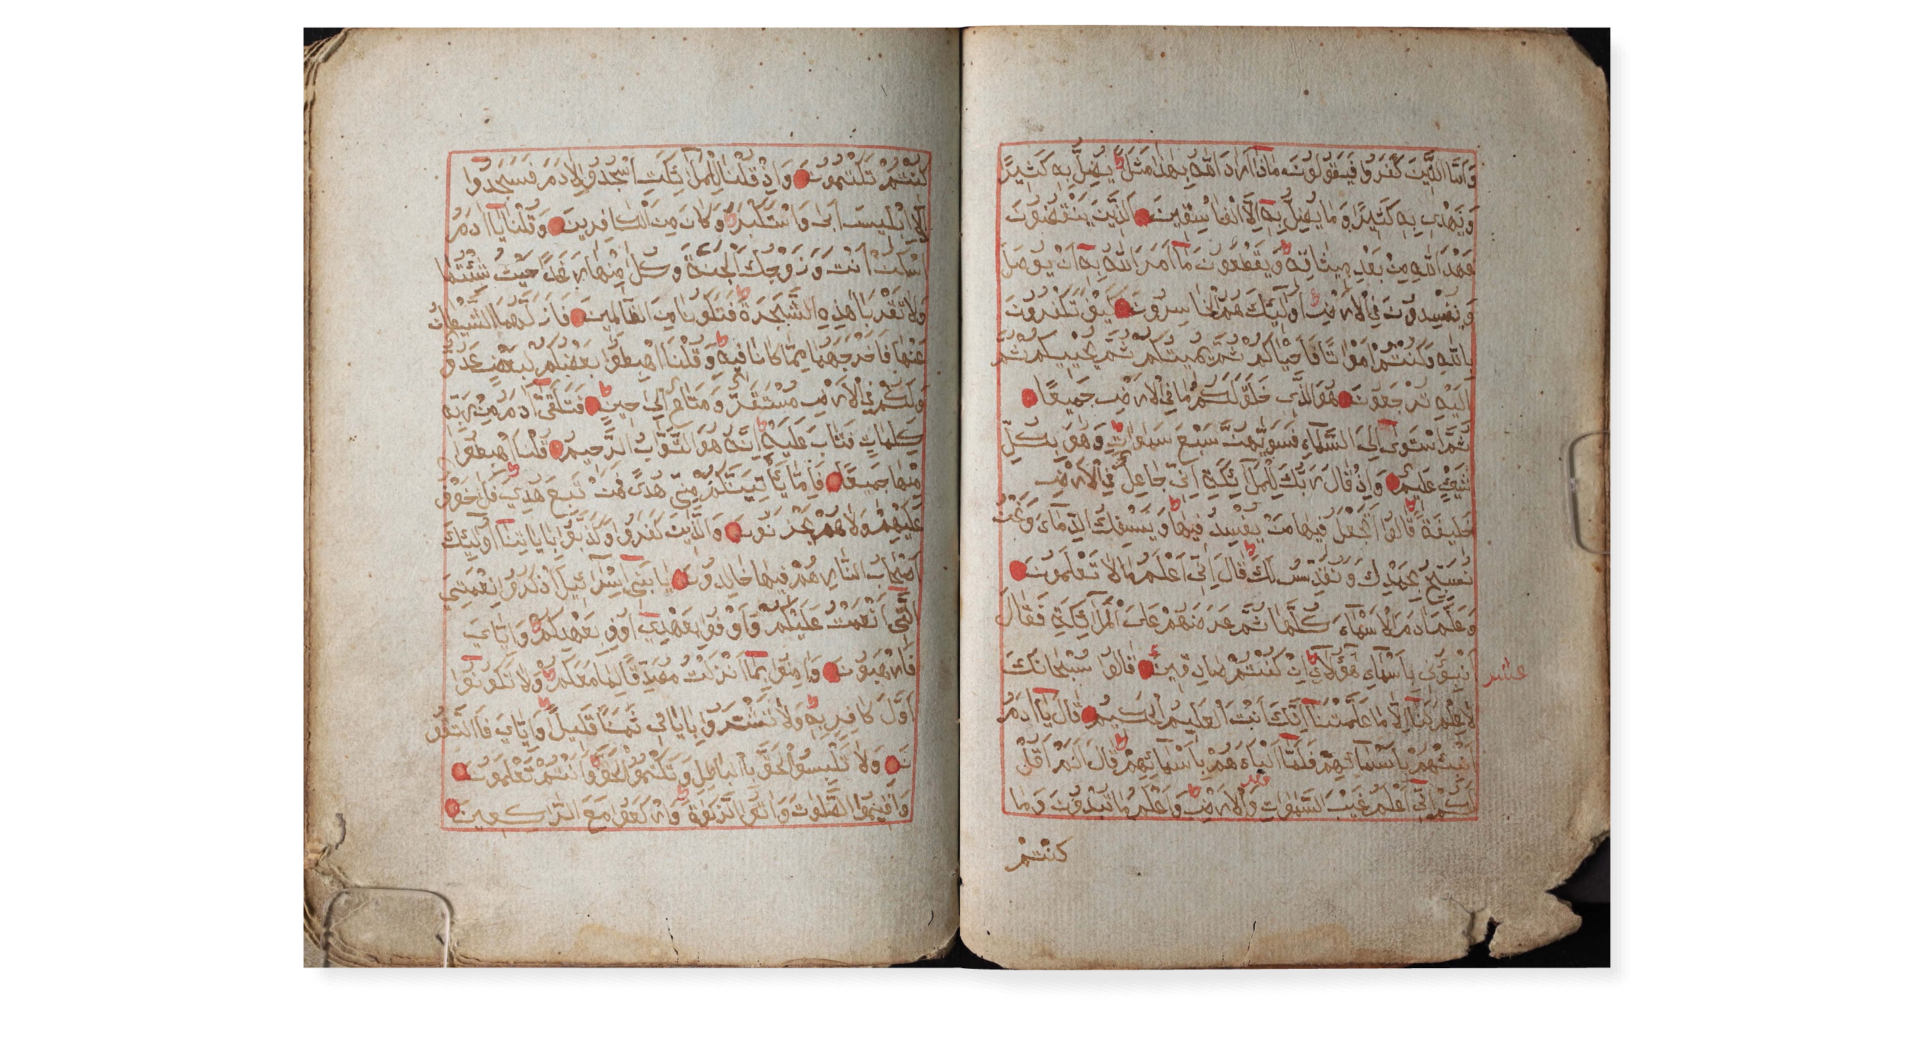 وَاَمَّا الَّذِينَ كَفَرُوا فَيَقُولُونَ مَاذَا اَرَادَ اللّٰهُ بِهٰذَا مَثَلًا يُضِلُّ بِهِ كَثِيرًا
وَيَهْدِي بِهِ كَثِيرًا وَمَا يُضِلُّ بِهِ اِلَّا الْفَاسِقِينَ الَّذِينَ يَنْقُضُونَ
عَهْدَ اللّٰهِ مِنْ بَعْدِ مِيثَاقِهِ وَيَقْطَعُونَ مَا اَمَرَ اللّٰهُ بِهِ اَنْ يُوصَلَ
وَيُفْسِدُونَ فِي الْاَرْضِ اُولٰئِكَ هُمُ الْخَاسِرُونَ كَيْفَ تَكْفُرُونَ
بِاللّٰهِ وَكُنْتُمْ اَمْوَاتًا فَاَحْيَاكُمْ ثُمَّ يُمِيتُكُمْ ثُمَّ يُحْيِيكُمْ ثُمَّ
اِلَيْهِ تُرْجَعُونَ هُوَ الَّذِي خَلَقَ لَكُمْ مَا فِي الْاَرْضِ جَمِيعًا
ثُمَّ اسْتَوٰى اِلَى السَّمَاءِ فَسَوّٰيهُنَّ سَبْعَ سَمٰوَاتٍ وَهُوَ بِكُلِّ
شَيْءٍ عَلِيمٌ وَاِذْ قَالَ رَبُّكَ لِلْمَلَائِكَةِ اِنِّي جَاعِلٌ فِي الْاَرْضِ
خَلِيفَةً قَالُوا اَتَجْعَلُ فِيهَا مَنْ يُفْسِدُ فِيهَا وَيَسْفِكُ الدِّمَاءَ وَنَحْنُ
نُسَبِّحُ بِحَمْدِكَ وَنُقَدِّسُ لَكَ قَالَ اِنِّي اَعْلَمُ مَا لَا تَعْلَمُونَ
وَعَلَّمَ اٰدَمَ الْاَسْمَاءَ كُلَّهَا ثُمَّ عَرَضَهُمْ عَلَى الْمَلَائِكَةِ فَقَالَ
اَنْبِئُونِي بِاَسْمَاءِ هٰؤُلَاءِ اِنْ كُنْتُمْ صَادِقِينَ قَالُوا سُبْحَانَكَ
عشر
لَا عِلْمَ لَنَا اِلَّا مَا عَلَّمْتَنَا اِنَّكَ اَنْتَ الْعَلِيمُ الْحَكِيمُ قَالَ يَا اٰدَمُ
اَنْبِئْهُمْ بِاَسْمَائِهِمْ فَلَمَّا اَنْبَاَهُمْ بِاَسْمَائِهِمْ قَالَ اَلَمْ اَقُلْ
لَكُمْ اِنِّي اَعْلَمُ غَيْبَ السَّمٰوَاتِ وَالْاَرْضِ وَاَعْلَمُ مَا تُبْدُونَ وَمَا
كُنْتُمْ
كُنْتُمْ تَكْتُمُونَ وَاِذْ قُلْنَا لِلْمَلَائِكَةِ اسْجُدُوا لِاٰدَمَ فَسَجَدُوا
اِلَّا اِبْلِيسَ اَبٰى وَاسْتَكْبَرَ وَكَانَ مِنَ الْكَافِرِينَ وَقُلْنَا يَا اٰدَمُ
اسْكُنْ اَنْتَ وَزَوْجُكَ الْجَنَّةَ وَكُلَا مِنْهَا رَغَدًا حَيْثُ شِئْتُمَا
وَلَا تَقْرَبَا هٰذِهِ الشَّجَرَةَ فَتَكُونَا مِنَ الظَّالِمِينَ فَاَزَلَّهُمَا الشَّيْطَانُ
عَنْهَا فَاَخْرَجَهُمَا مِمَّا كَانَا فِيهِ وَقُلْنَا اهْبِطُوا بَعْضُكُمْ لِبَعْضٍ عَدُوٌّ
وَلَكُمْ فِي الْاَرْضِ مُسْتَقَرٌّ وَمَتَاعٌ اِلٰى حِينٍ فَتَلَقّٰى اٰدَمُ مِنْ رَبِّهِ
كَلِمَاتٍ فَتَابَ عَلَيْهِ اِنَّهُ هُوَ التَّوَّابُ الرَّحِيمُ قُلْنَا اهْبِطُوا
مِنْهَا جَمِيعًا فَاِمَّا يَاْتِيَنَّكُمْ مِنِّي هُدًى فَمَنْ تَبِعَ هُدَايَ فَلَا خَوْفٌ
عَلَيْهِمْ وَلَا هُمْ يَحْزَنُونَ وَالَّذِينَ كَفَرُوا وَكَذَّبُوا بِاٰيَاتِنَا اُولٰئِكَ
اَصْحَابُ النَّارِ هُمْ فِيهَا خَالِدُونَ يَا بَنِي اِسْرَائِيلَ اذْكُرُوا نِعْمَتِيَ
الَّتِي اَنْعَمْتُ عَلَيْكُمْ وَاَوْفُوا بِعَهْدِي اُوفِ بِعَهْدِكُمْ وَاِيَّايَ
فَارْهَبُونِ وَاٰمِنُوا بِمَا اَنْزَلْتُ مُصَدِّقًا لِمَا مَعَكُمْ وَلَا تَكُونُوا
اَوَّلَ كَافِرٍ بِهِ وَلَا تَشْتَرُوا بِاٰيَاتِي ثَمَنًا قَلِيلًا وَاِيَّايَ فَاتَّقُو
نِ وَلَا تَلْبِسُوا الْحَقَّ بِالْبَاطِلِ وَتَكْتُمُوا الْحَقَّ وَاَنْتُمْ تَعْلَمُونَ
وَاَقِيمُوا الصَّلٰوةَ وَاٰتُوا الزَّكٰوةَ وَارْكَعُوا مَعَ الرَّاكِعِينَ